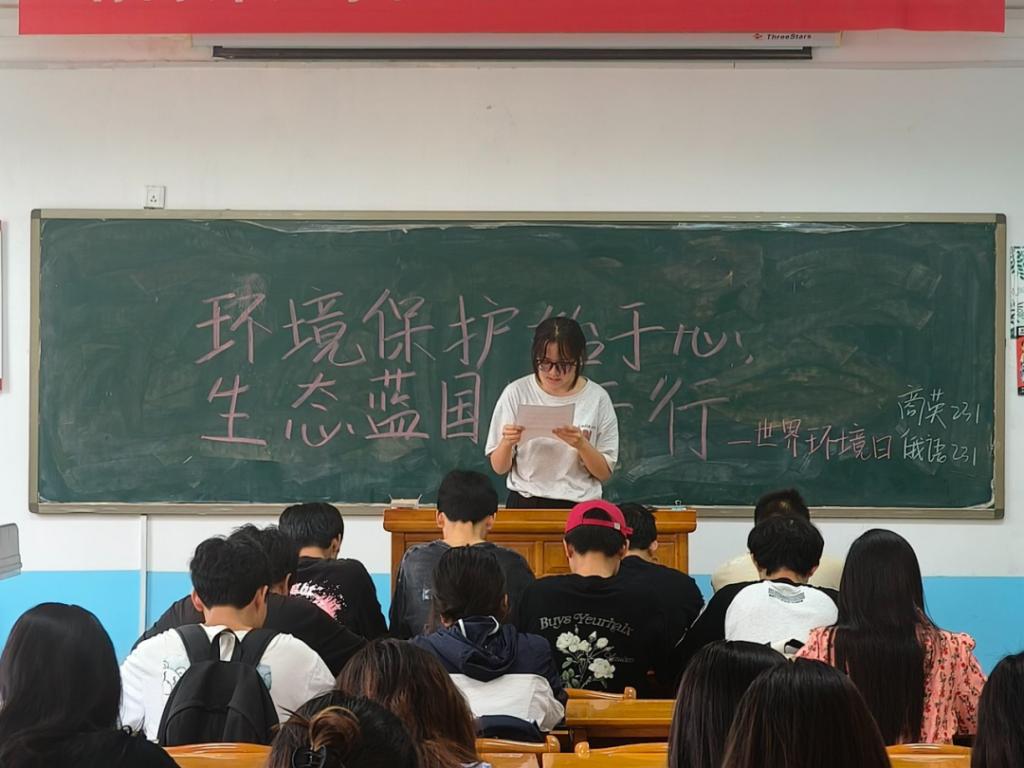 ThreeStars
环境保护 于心;
生态蓝国 行
—世界环境日
商英231
俄语231